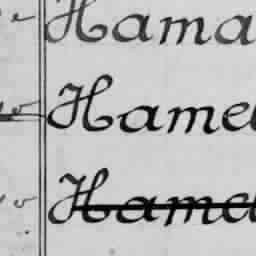 Hama
Hame
Hame